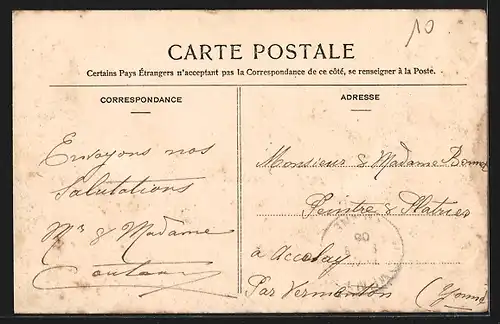 10
CARTE POSTALE
Certains Pays Étrangers n'acceptant pas la Correspondance de ce côté, se renseigner à la Poste.
CORRESPONDANCE
Envoyons nos
Salutations
Mr & Madame
ADRESSE
Monsieur & Madame Bonnet
Peintre & Platrier
a Accolay
Par Vermenton (Yonne
08